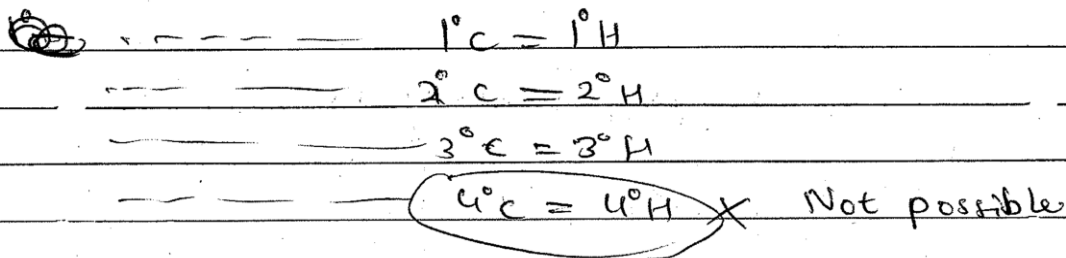 1°C = 1°H
2°C = 2°H
3°C = 3°H
4°C = 4°H × Not possible